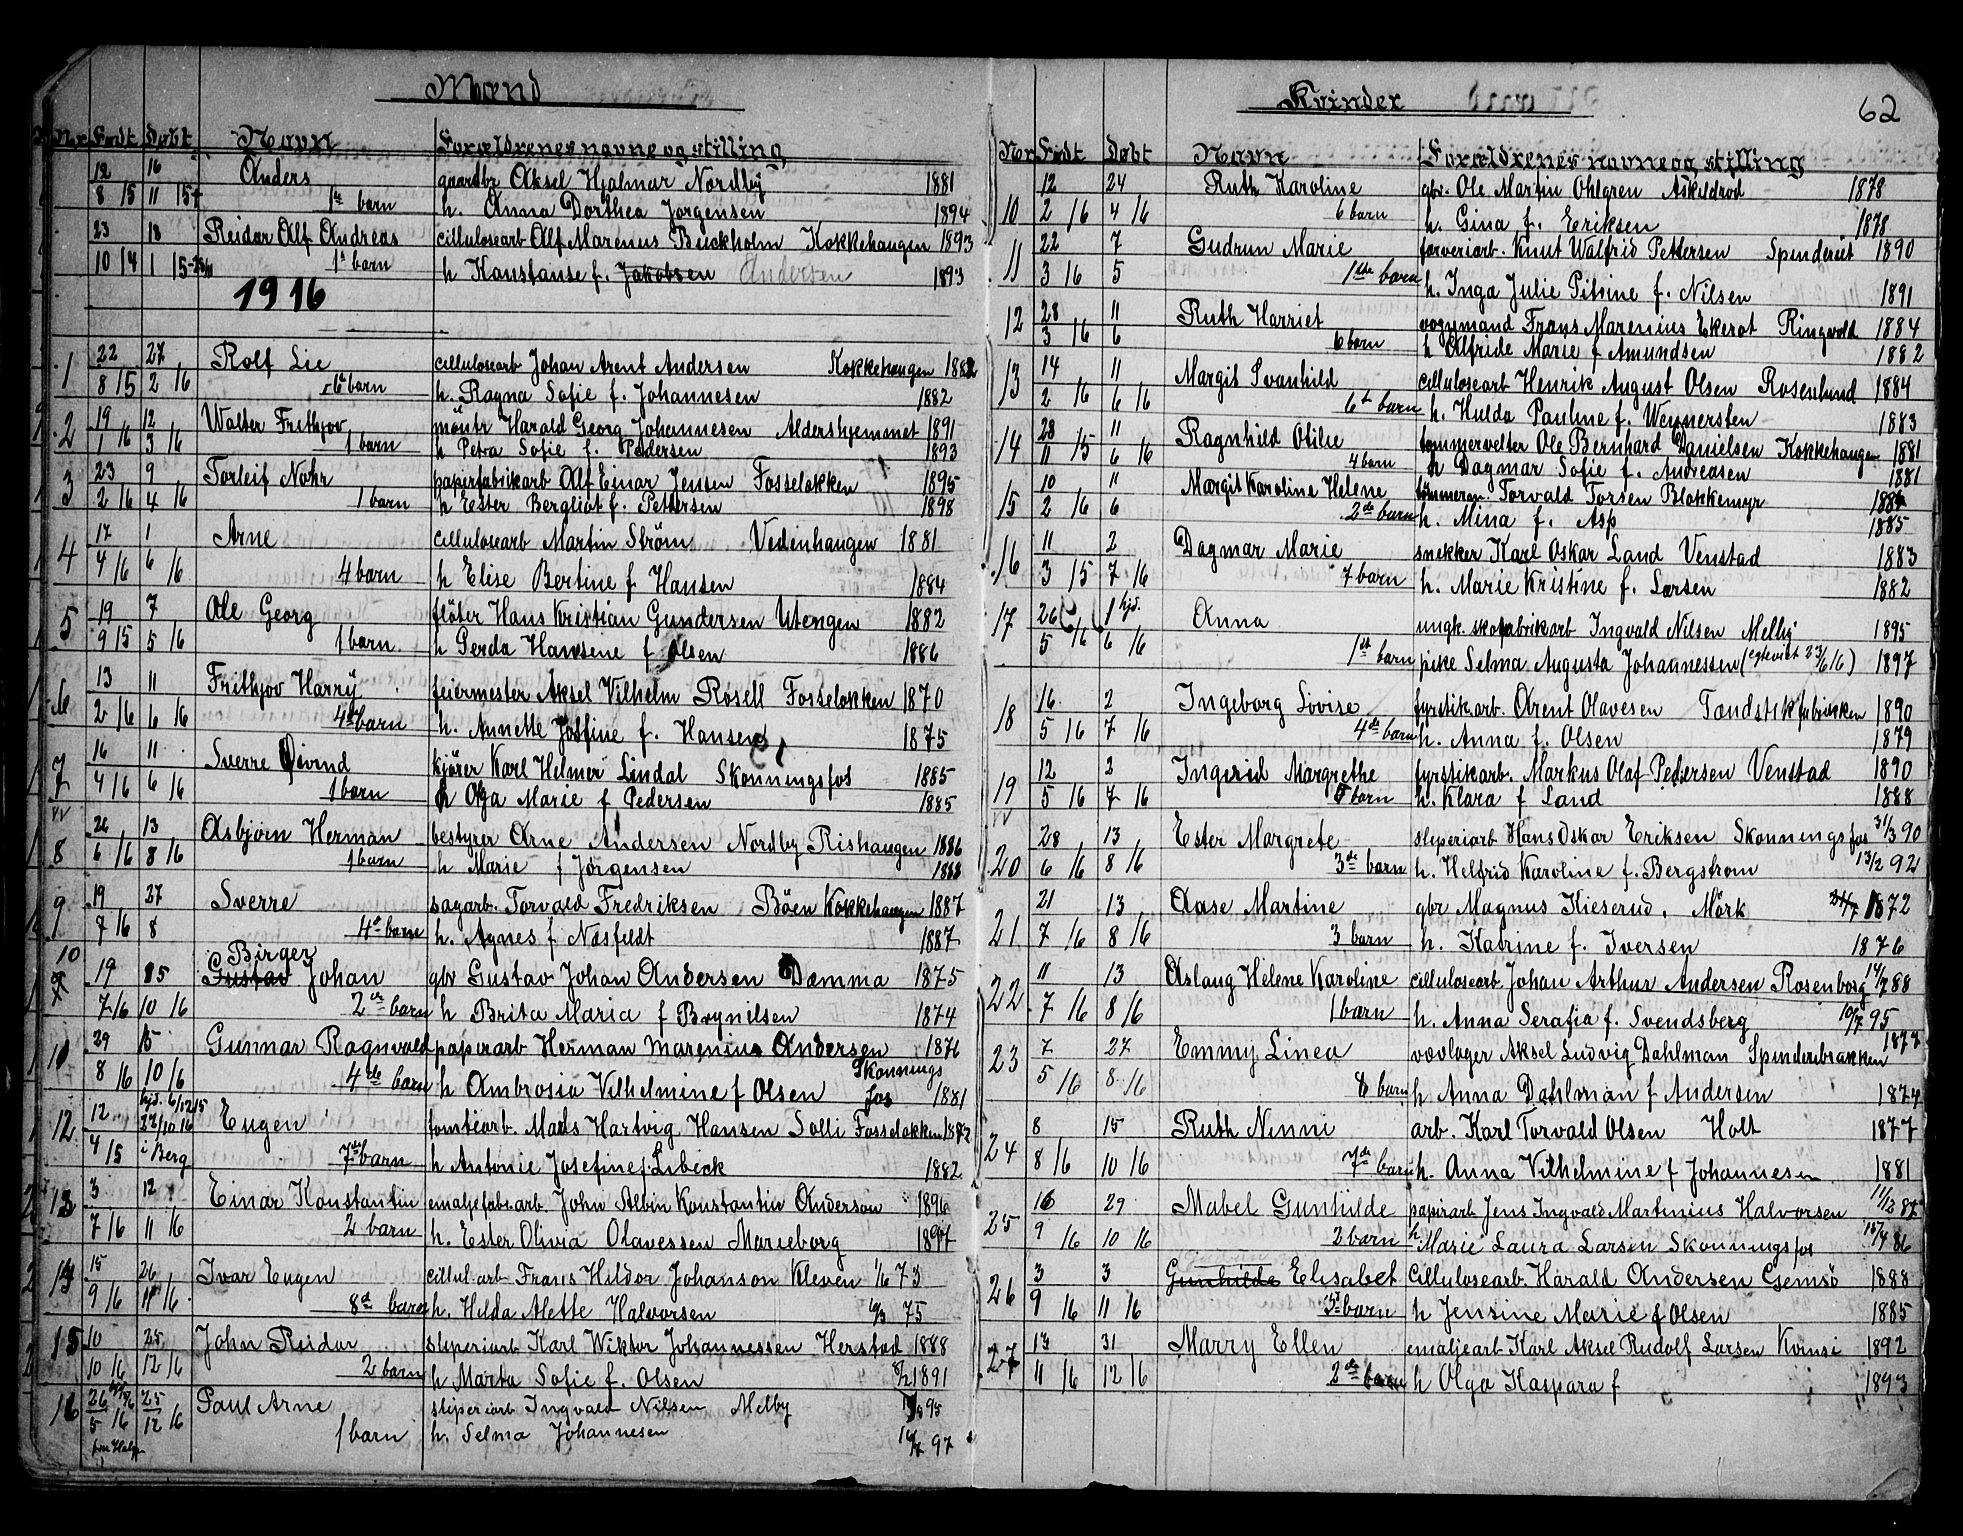 Mænd
Nr Født Døbt Navn Forældrenes navne og stilling
12 16 Anders gaardbr Aksel Hjalmar Nordby 1881
8 15 11 15 1ste barn h. Anna Dorthea Jørgensen 1894
23 18 Reidar Alf Andreas cellulosearb Alf Marenus Buckholm Kokkehaugen 1893
10 14 1 15 1ste barn h Konstanse f. Jakobsen Andersen 1893
1916
1 22 27 Rolf Lie cellulosearb Johan Arent Andersen Kokkehaugen 1882
8 15 2 16 6te barn h. Ragna Sofie f. Johannesen 1882
2 19 12 Walter Frithjov möntr Harald Georg Johannesen Aldershjemmet 1891
1 16 3 16 1 barn h Petra Sofie f. Pedersen 1893
3 23 9 Torleif Nohr papirfabrikarb Alf Einar Jensen Fosseløkken 1895
2 16 4 16 1 barn h Ester Bergliot f. Pettersen 1898
4 17 1 Arne cellulosearb Martin Ström Vedenhaugen 1881
4 16 6 16 4 barn h Elise Bertine f Hansen 1884
5 19 7 Ole Georg fløter Hans Kristian Gundersen Utengen 1882
9 15 5 16 1 barn. h Gerda Hansene f Olsen 1886
6 13 11 Frithjov Harry feiermester Aksel Vilhelm Rosell Fosseløkken 1870
2 16 6 16 4de barn h. Annette Josfine f. Hansen 1875
7 16 11 Sverre Øivind kjører Karl Helmer Lindal Skonningsfos 1885
4 16 6 16 1 barn h Olga Marie f Pedersen 1885
8 26 13 Asbjørn Herman bestyrer Arne Andersen Nordby Rishaugen 1886
6 16 8 16 1 barn h Marie f Jørgensen 1888
9 19 27 Sverre sagarb. Torvald Fredriksen Böen Kokkehaugen 1887
7 16 8 4de barn h. Agnes f Næsfeldt 1887
Birger
10 19 Gustav Johan gbr Gustav Johan Andersen Damma 1875
7 16 10 16 2det barn h Brita Maria f Brynilsen 1874
11 29 15 Gunnar Ragnvald papirarb Herman Marenius Andersen 1876
8 16 10 16 4de barn h Ambrosia Vilhelmine f Olsen Skonningsfos 1881
12 12 hjd. 6/12 15 Eugen tomtearb. Mads Hartvig Hansen Solli Fosseløkken 1872
22/10 16
4 15 i Berg 7de barn h Antonie Josefine f. Libeck 1882
13 3 12 Einar Konstantin emaljefabr.arb. John Albin Konstantin Anderson 1896
7 16 11 16 2 barn h. Ester Olivia Olavessen Marieborg
14 15 26 Ivar Eugen cellul.arb Frans Hildor Johanson Kleven 1/6 73
9 16 11 16 8de barn h. Hilda Alette Halvorsen 75
15 10 25 John Reidar sliperiarb Karl Wiktor Johannessen Herstad 1888
10 16 12 16 2 barn h Marta Sofie f. Olsen 1891
16 26 25 Paul Arne sliperiarb Ingvald Nilsen Melby 95
5 16 12 16 1 barn h. Selma Johannesen 97
62
Kvinder
Nr Født Døbt Navn Forældrenes navne og stilling
10 12 24 Ruth Karoline gbr. Ole Martin Ohlgren Askildrød 1878
2 16 4 16 6 barn h. Gina f. Eriksen 1878
11 22 7 Gudrun Marie farveriarb. Knut Walfrid Pettersen Spenderiet 1890
3 16 5 1ste barn h. Inga Julie Pitrine f. Nilsen 1891
12 28 11 Ruth Harriet vognmand Frans Marenius Ekerot Ringvold 1884
3 16 6 6 barn h Alfride Marie f Amundsen 1882
13 14 11 Margit Svanhild cellulosearb Henrik August Olsen Rosenlund 1884
2 16 6 16 6te barn h. Hulda Pauline f. Wennersten 1883
14 28 11 Ragnhild Otilie tømmervelter Ole Bernhard Danielsen Kokkehaugen 1881
11 15 6 16 4 barn h Dagmar Sofie f. Andreasen 1881
15 10 11 Margit Karoline Helene tømmerm. Torvald Torsen Blokkemyr
2 16 6 2de barn h. Mina f. Asp 1885
16 11 2 Dagmar Marie snekker Karl Oskar Land Venstad 1883
3 15 7 16 7 barn h. Marie Kristine f. Larsen 1882
17 26 1 hjd. Anna ungk. skofabrikarb Ingvald Nilsen Melby 1895
5 16 6 16 1st barn pike Selma Augusta Johannessen (egteviet 23/6 16) 1897
18 16 2 Ingeborg Lovise fyrstikarb. Arent Olavesen Tændstikfabrikken 1890
5 16 7 16 4de barn h. Anna f. Olsen 1879
19 12 2 Ingerid Margrethe fyrstikarb. Markus Olaf Pedersen Venstad 1890
5 16 7 16 barn h. Klara f Land 1888
20 28 13 Ester Margrete sliperiarb Hans Oskar Eriksen Skonningsfos 31/3 90
6 16 8 16 3de barn h. Helfrid Karoline f. Bergstrøm 13/2 92
21 21 13 Aase Martine gbr Magnus Kieserud, Mörk 1872
7 16 8 16 3 barn h. Katrine f. Iversen 1876
22 11 13 Aslaug Helene Karoline celluloseab. Johan Arthur Andersen Rosenborg 14/7 88
7 16 8 16 1 barn h. Anna Serafia f. Svendsberg 10/7 95
23 7 27 Emmy Linea vævlager Aksel Ludvig Dahlman Spinderibrakken 1873
5 16 8 16 8 barn h Anna Dahlman f Andersen 1874
24 8 15 Ruth Ninni arb. Karl Torvald Olsen Holt 1877
8 16 10 16 7de barn h. Anna Vilhelmine f Johannesen 1881
25 16 29 Mabel Gunhilde papirarb Jens Ingvald Martinius Halvorsen 11/12 87
9 16 10 16 2 barn h Marie Laura Larsen Skonningsfos 86
26 3 3 Gunhilde Elisabet Celluloseab. Harald Andersen Gemsö 1888
9 16 11 16 barn h Jensine Marie f Olsen 1885
27 13 31 Marry Ellen emaljearb Karl Aksel Rudolf Larsen Kornsø 1892
11 16 12 16 2de barn h Olga Kaspara f 1893